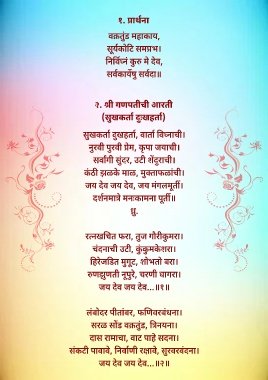 १. प्रार्थना
वक्रतुंड महाकाय,
सूर्यकोटि समप्रभ।
निर्विघ्नं कुरु मे देव,
सर्वकार्येषु सर्वदा॥
२. श्री गणपतीची आरती
(सुखकर्ता दुःखहर्ता)
सुखकर्ता दुखहर्ता, वार्ता विघ्नाची।
नुरवी पुरवी प्रेम, कृपा जयाची।
सर्वांगी सुंदर, उटी शेंदुराची।
कंठी झळके माळ, मुक्ताफळांची।
जय देव जय देव, जय मंगलमूर्ती।
दर्शनमात्रे मनःकामना पूर्ती॥
धृ.
रत्नखचित फरा, तुज गौरीकुमरा।
चंदनाची उटी, कुंकुमकेशरा।
हिरेजडित मुगूट, शोभतो बरा।
रुणझुणती नूपुरे, चरणी घागरा।
जय देव जय देव...॥१॥
लंबोदर पीतांबर, फणिवरबंधना।
सरळ सोंड वक्रतुंड, त्रिनयना।
दास रामाचा, वाट पाहे सदना।
संकटी पावावे, निर्वाणी रक्षावे, सुरवरवंदना।
जय देव जय देव...॥२॥